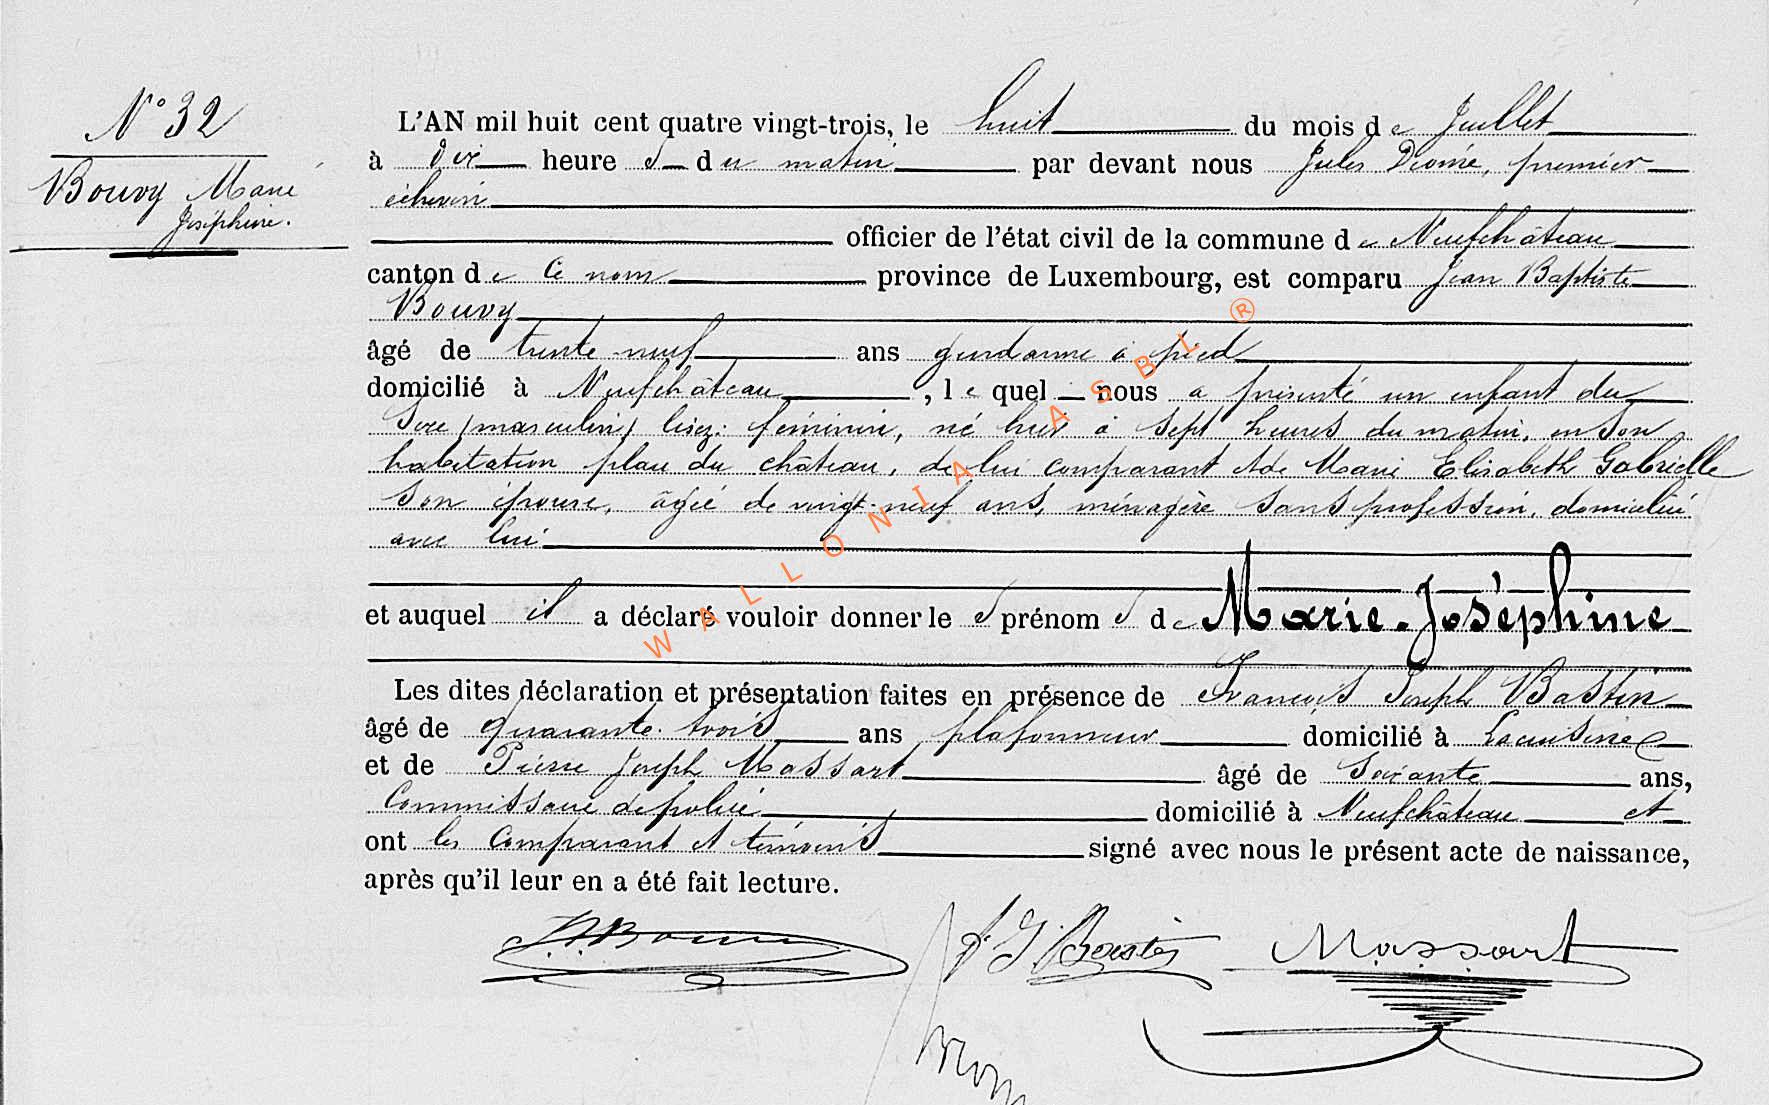 N° 32
Bouvy Marie
Joséphine.
L'AN mil huit cent quatre vingt-trois, le huit du mois de Juillet
à dix heures du matin par devant nous Jules Dromé, premier
échevin
officier de l'état civil de la commune de Neufchâteau
canton de ce nom province de Luxembourg, est comparu Jean Baptiste
Bouvy
âgé de trente-neuf ans gendarme à pied
domicilié à Neufchâteau, lequel nous a présenté un enfant du
sexe (masculin) lisez: féminin, né hier à sept heures du matin, en son
habitation place du château, de lui comparant et de Marie Elisabeth Gabrielle
son épouse, âgée de vingt-neuf ans, ménagère sans profession, domiciliée
avec lui
et auquel il a déclaré vouloir donner les prénoms de Marie-Joséphine
Les dites déclaration et présentation faites en présence de François Joseph Bastin
âgé de quarante-trois ans plafonneur domicilié à Lacuisine
et de Pierre Joseph Massart âgé de soixante ans,
Commissaire de police domicilié à Neufchâteau et
ont les comparant et témoins signé avec nous le présent acte de naissance,
après qu'il leur en a été fait lecture.
J.B. Bouvy F. J. Bastin Massart
WALLONIA ASBL ®